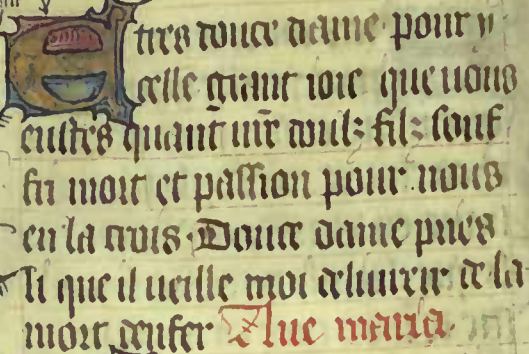 E tres douce dame pour y
celle grant ioie que uous
eustes quant ur̃e doulz filz souf
fri mort et passion pour nous
en la crois. Douce dame pries
li que il ueille moi deliurer de la
mort denfer Aue maria.